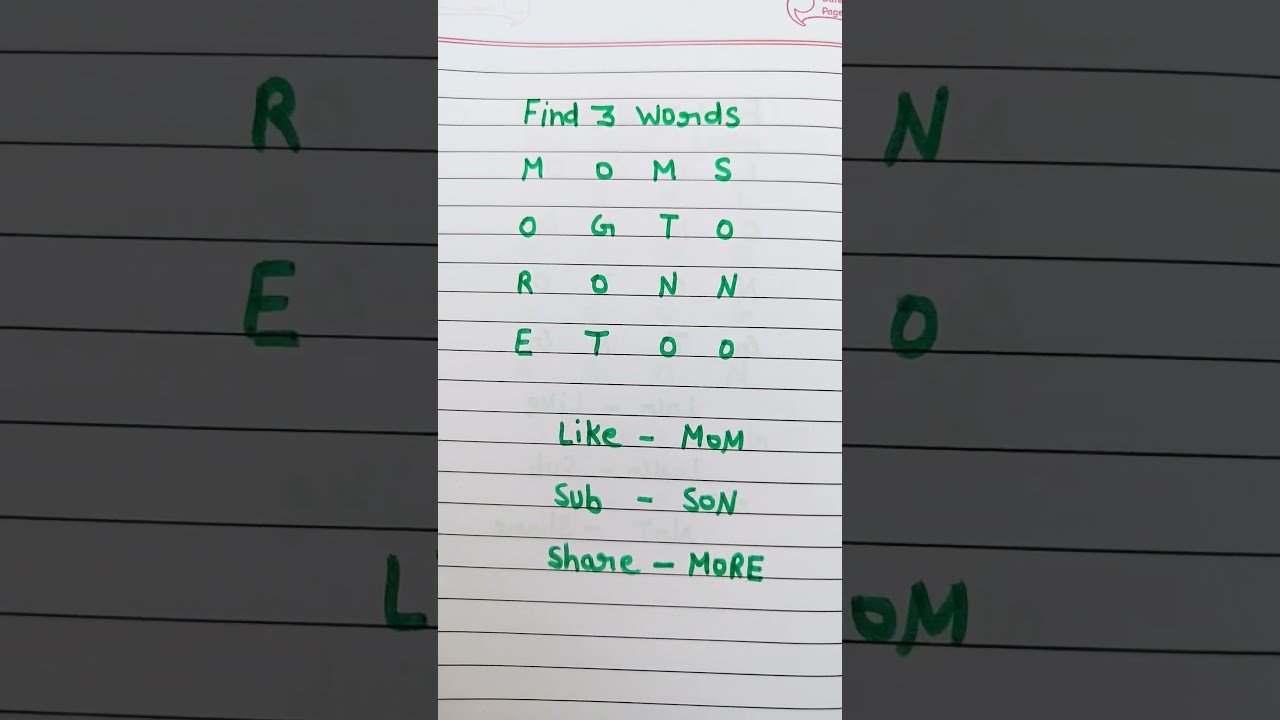 Page
Find 3 words
M O M S
O G T O
R O N N
E T O O
Like - MOM
Sub - SON
Share - MORE
R
E
L
N
O
OM